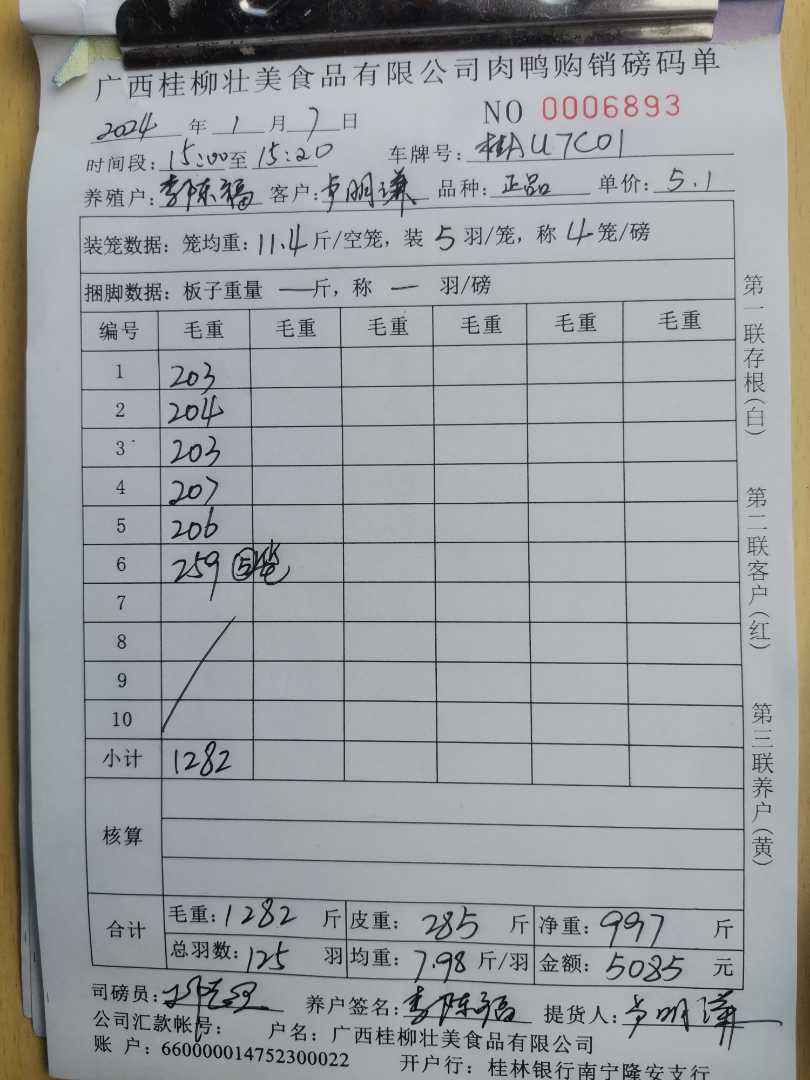 广西桂柳壮美食品有限公司肉鸭购销磅码单
2024 年 1 月 7 日 NO 0006893
时间段: 15:00 至 15:20 车牌号: 桂AU7C01
养殖户: 李陈福 客户: 卢明谦 品种: 正品 单价: 5.1
装笼数据: 笼均重: 11.4 斤/空笼, 装 5 羽/笼, 称 4 笼/磅
捆脚数据: 板子重量 — 斤, 称 — 羽/磅
编号 毛重 毛重 毛重 毛重 毛重 毛重
1 203
2 204
3 203
4 207
5 206
6 259 ⑤笼
7
8
9
10
小计 1282
核算
合计 毛重: 1282 斤 皮重: 285 斤 净重: 997 斤
总羽数: 125 羽 均重: 7.98 斤/羽 金额: 5085 元
司磅员: 养户签名: 李陈福 提货人: 卢明谦
公司汇款帐号: 户名: 广西桂柳壮美食品有限公司
账 户: 660000014752300022 开户行: 桂林银行南宁隆安支行
第一联存根(白)
第二联客户(红)
第三联养户(黄)